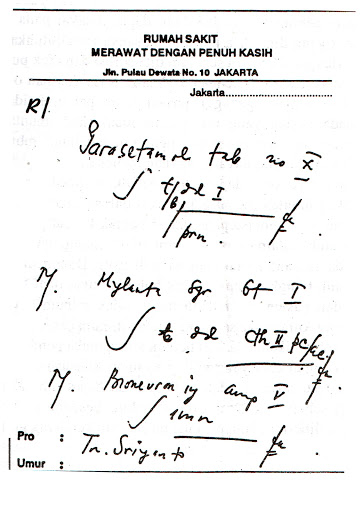 RUMAH SAKIT
MERAWAT DENGAN PENUH KASIH
Jln. Pulau Dewata No. 10 JAKARTA
Jakarta...............................
R/
Parasetamol tab no X
∫ dd I
prn
R/. Mylanta syr bt I
∫ dd cth II pc/ac
R/. Bioneuron inj amp V
∫ imm
Pro : Tn. Sriyanto
Umur :